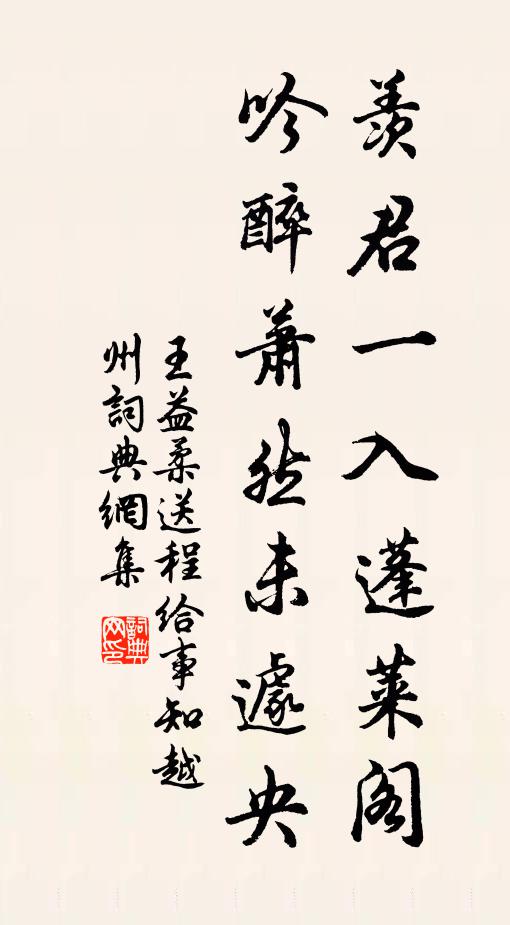 羨君一入蓬萊閣
吟醉蕭然未遽央
王益柔送程給事知越
州詞典網集
詞典
网印